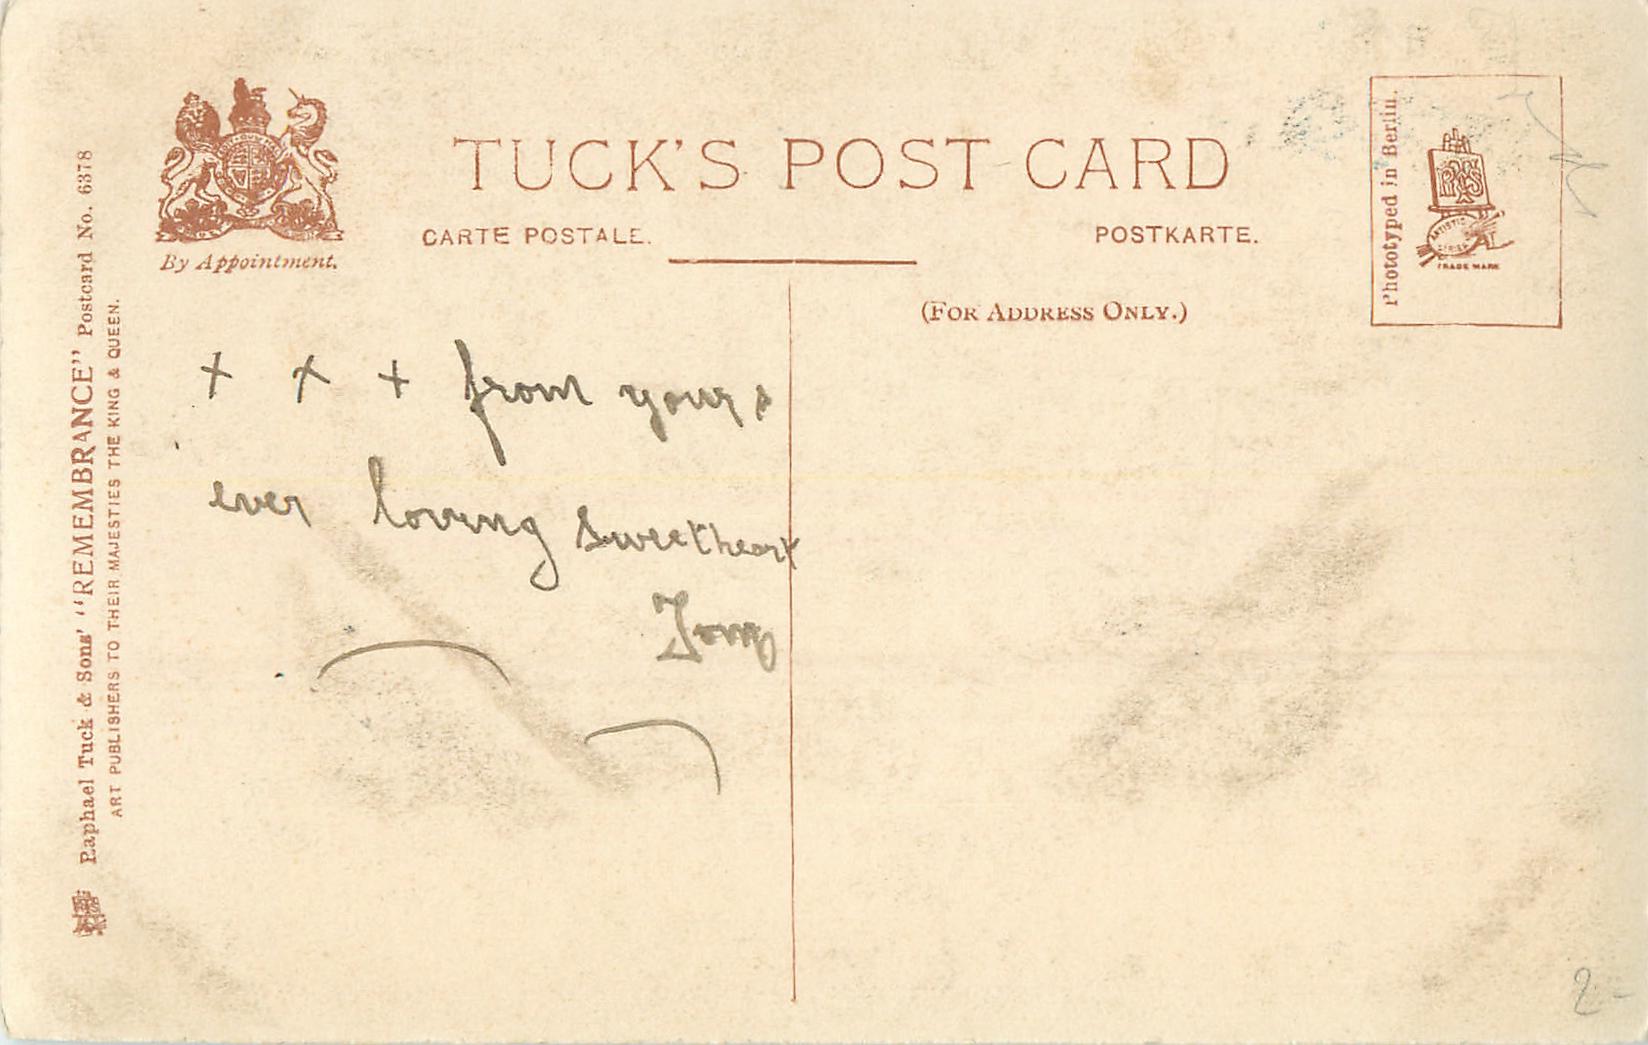 TUCK'S POST CARD
CARTE POSTALE.
POSTKARTE.
By Appointment.
(FOR ADDRESS ONLY.)
Phototyped in Berlin.
ARTISTIC
SERIES
TRADE MARK
Raphael Tuck & Sons' "REMEMBRANCE" Postcard No. 6378
ART PUBLISHERS TO THEIR MAJESTIES THE KING & QUEEN.
+ x + from yours
ever loving sweetheart
2-